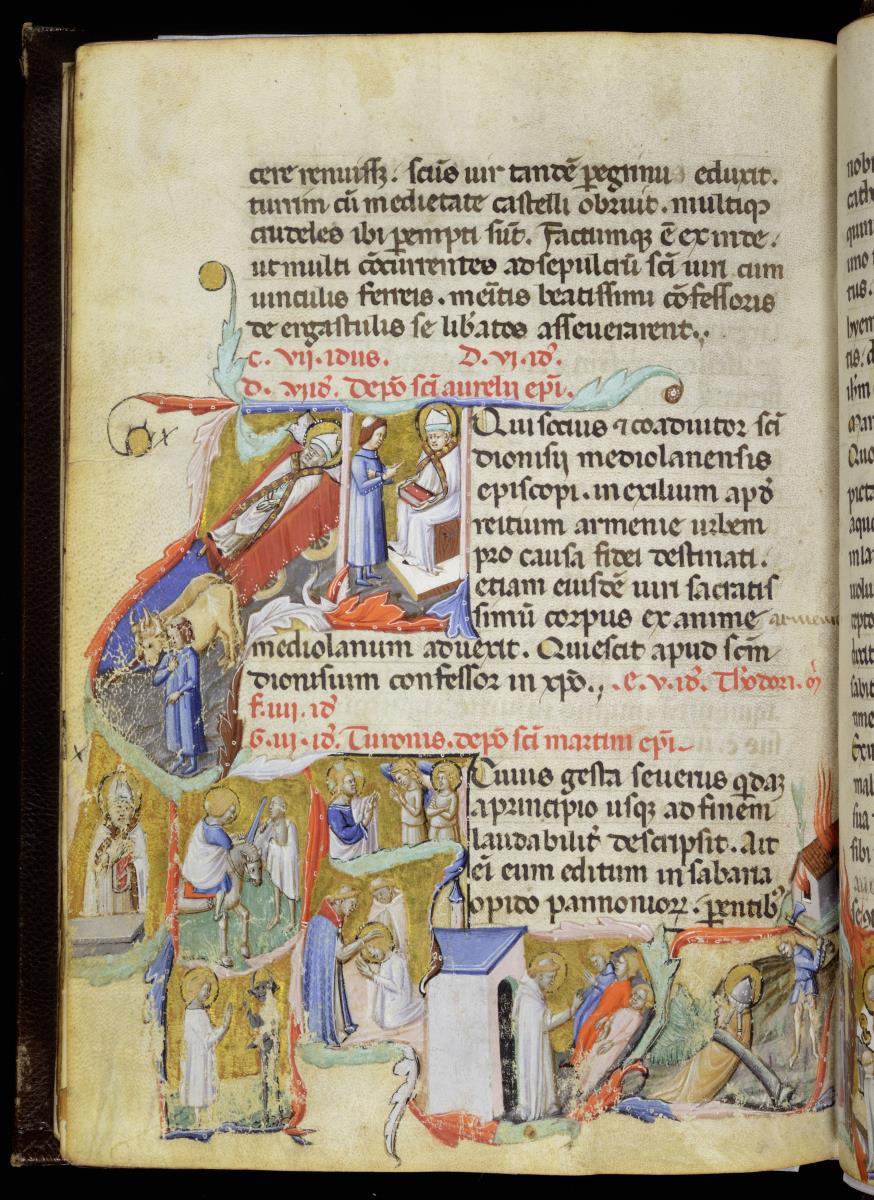 cere renuiss&. scūs uir tandē pegrinu eduxit.
turrim cū medietate castelli obruit. multiq;
crudeles ibi pempti sūt. Factumq; ē ex inde.
ut multi cōcurrentes ad sepulcrū scī uiri cum
uinculis ferreis. meītis beatissimi cōfessoris
de ergastulis se lib'atos asseuerarent.
C. VII. idus. D. VI. id'.
D. VII id'. Depō scī aurelii epī.
Qui socius ⁊ coadiutor scī
dionisij mediolanensis
episcopi. in exilium apd'
reitium armenie urbem
pro causa fidei destinati.
etiam eiusdē uiri sacratis
simū corpus ex anime armenie
mediolanum aduexit. Quiescit apud scm̄
dionisium confessor in xpō. E. V. id'. Th'odori. m̄
F. IIII. id'
G. III. id'. Turonis. depō scī martini epī
Cuius gesta seuerus qdaz
a principio usq; ad finem
laudabilit' descripsit. Ait
eī eum editum in sabaria
opido pannonioꝝ. pentib'